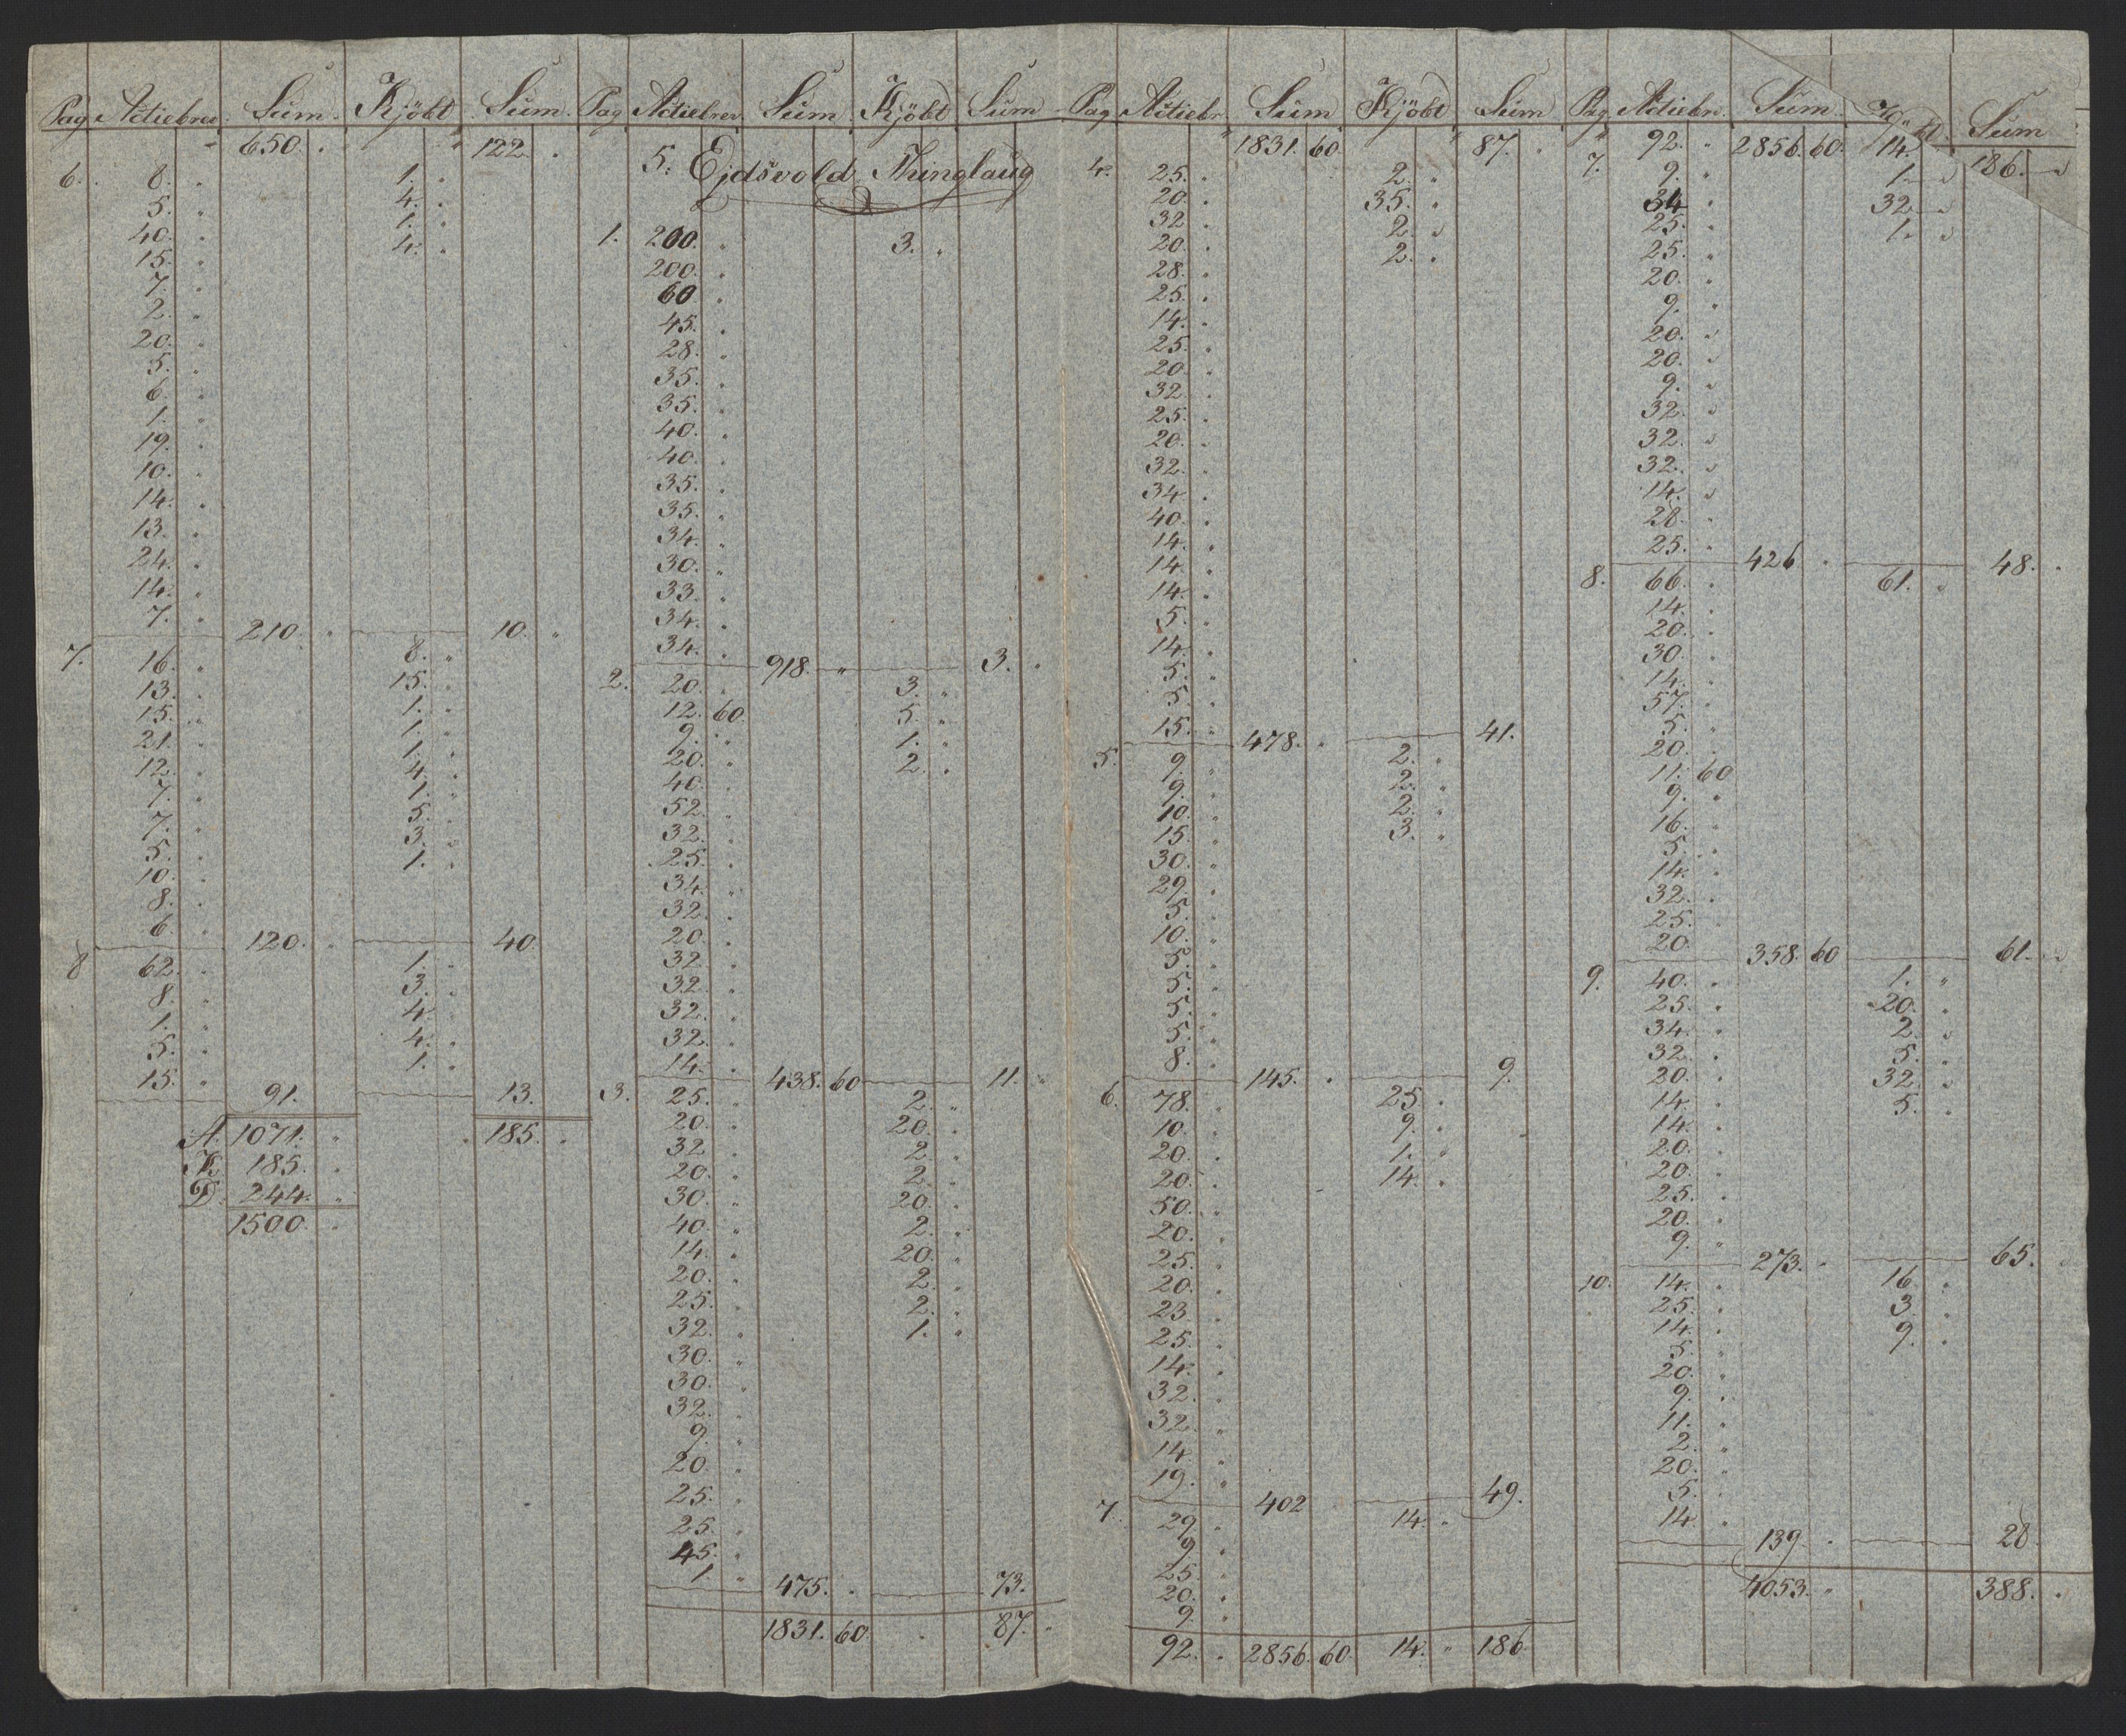 Pag Actiebrev. Sum. Kjöbt Sum.
650. 122.
6. 8. 1.
5. 4.
40. 1.
15. 4.
7.
2.
20.
5.
6.
1.
19.
10.
14.
13.
24.
14.
7.
210. 10.
7. 16. 8.
13. 15.
15. 1.
21. 1.
12. 1.
7. 4.
7. 1.
5. 5.
10. 3.
8. 1.
6.
120. 40
8 62. 1.
8. 3.
1. 4.
5. 4.
15. 1.
91. 13.
A. 1071. 185.
K. 185.
D. 244.
1500.
Pag Actiebrev. Sum Kjöbt Sum
5: Ejdsvold Thinglaug
1. 200. 3.
200.
60.
45.
28.
35.
35.
40.
40.
35.
35.
34.
30.
33.
34.
34.
918. 3.
2. 20. 3.
12. 60. 5.
9. 1.
20. 2.
40.
52.
32.
25.
34.
32.
20.
32.
32.
32.
32.
14.
438. 60 11.
3. 25. 2.
20. 20.
32 2.
20. 2.
30. 20.
40. 2.
14. 20.
20. 2.
25. 2.
32. 1.
30.
30.
32.
9.
20.
25.
25.
45.
1.
475. 73.
1831. 60. 87.
Pag Actiebr Sum Kjöbt Sum
1831. 60. 87.
4. 25. 2.
20. 35.
32 2.
20. 2.
28.
25.
14.
25.
20.
32.
25.
20.
32.
34.
40.
14.
14.
14.
5.
14.
5.
5.
15.
478. 41.
5. 9. 2.
9. 2.
10. 2.
15. 3.
30.
29.
5.
10.
5.
5.
5.
5.
8.
145. 9.
6. 78. 25.
10. 9.
20. 1.
20. 14.
50.
20.
25.
20.
23
25.
14.
32.
32.
14
19.
402 49.
7. 29. 14.
9.
25.
20.
9.
92. 2856. 60. 14. 186
Pag Actiebr. Sum. Sum
92. 2856. 60. 14. 186.
7. 9. 1.
34 32.
25. 1.
25.
20.
9.
20.
20.
9.
32.
32.
32.
14.
28.
25.
426 48.
8. 66. 61.
14.
20.
30.
14.
57.
5.
20.
11. 60
9.
16.
5.
14.
32.
25.
20.
358. 60 61.
9. 40. 1.
25. 20.
34. 2.
32. 5.
20. 32.
14. 5.
14.
20.
20.
25.
20.
9.
273. 65.
10. 14. 16.
25. 3
14. 9.
5.
20.
9.
11.
2.
20.
5.
14.
139. 28
4053. 388.